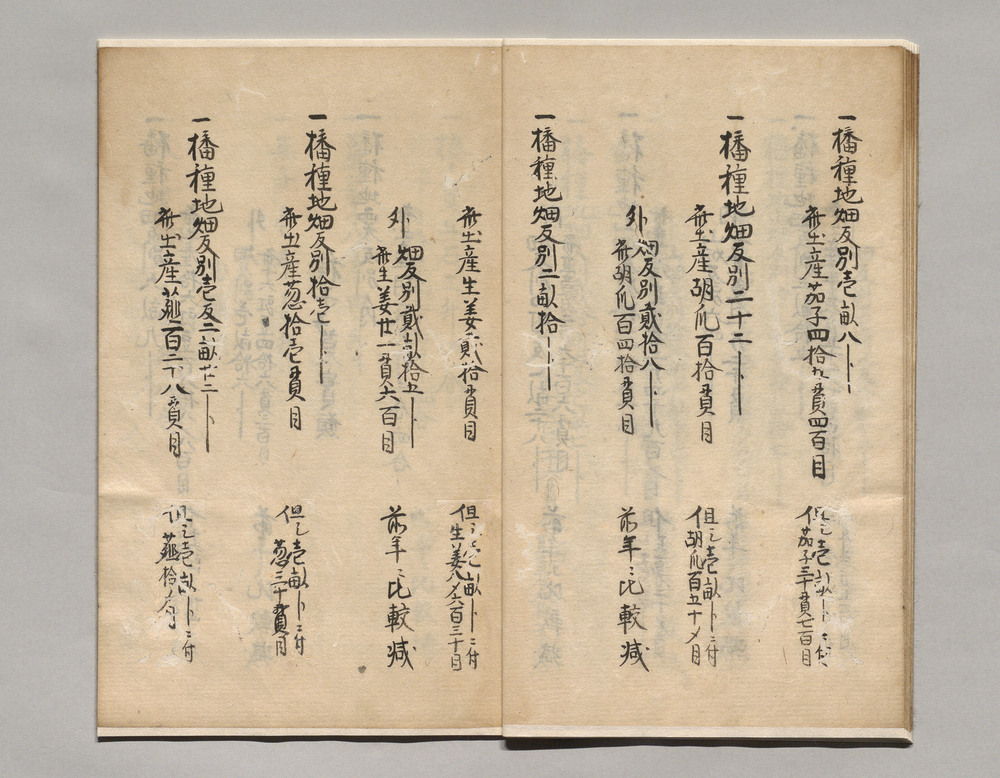 一播種地畑反別壱畝八ト
此土産茄子四拾九貫四百目
但シ壱畝卜ニ付
茄子三十貫七百目
一播種地畑反別二十二ト
此土産胡瓜百拾貫目
但シ壱畝卜ニ付
胡瓜百五十メ目
外畑反別貳拾八ト
此胡瓜百四拾貫目
前年ニ比較減
一播種地畑反別二畝拾ト
此土産生姜貳拾貫目
但シ壱畝卜ニ付
生姜八メ六百三十目
外畑反別貳畝拾五ト
此生姜廿一貫六百目
前年ニ比較減
一播種地畑反別拾壱ト
此土産葱拾壱貫目
但シ壱畝卜ニ付
葱三十貫目
一播種地畑反別壱反二畝廿二ト
此土産蕪二百二十八貫目
但シ壱畝卜ニ付
蕪拾